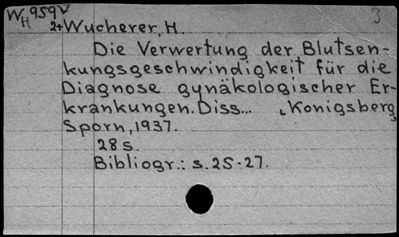 WH959V 3
2+Wucherer, H.
Die Verwertung der Blutsen-
kungsgeschwindigkeit für die
Diagnose gynäkologischer Er-
krankungen. Diss... Königsberg
Sporn, 1937.
28 s.
Bibliogr.: s. 25-27.